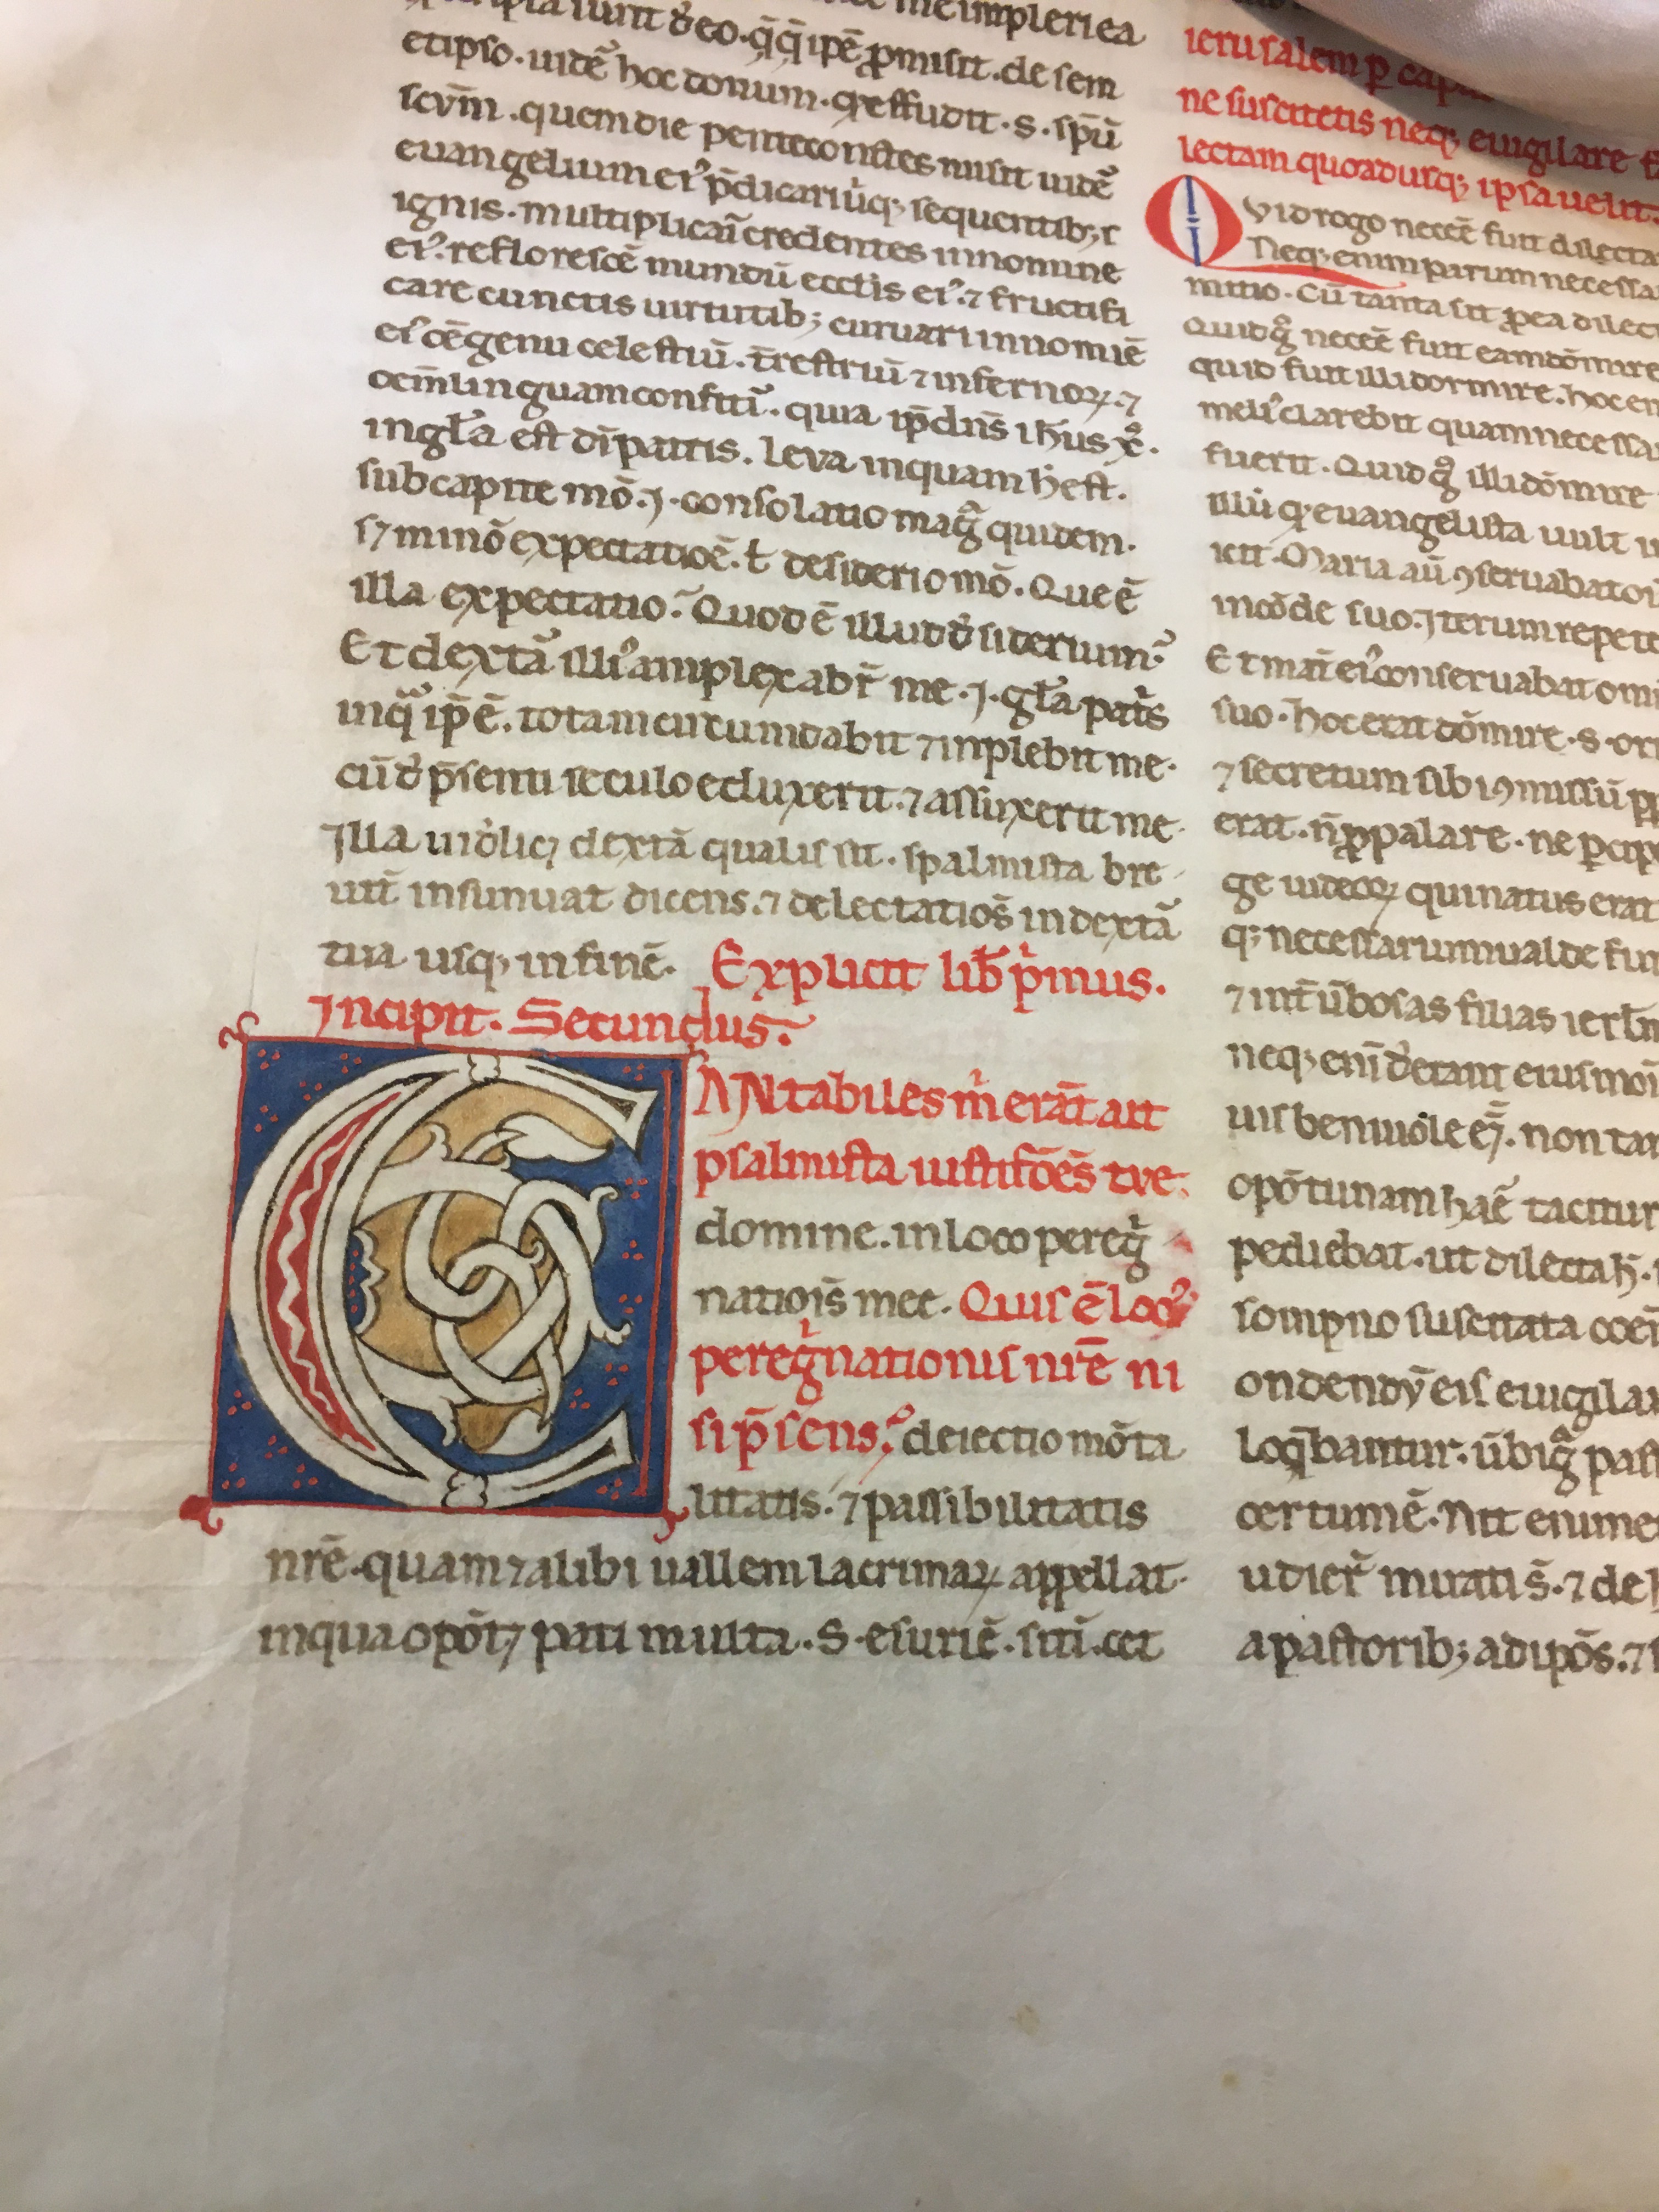 sunt deo. q̄q̄ ipē ꝓmisit. de sem
etipso. uidē hoc donum. qđ effudit. s. sp̄ū
sc̄vm̄. quem die pentecostes misit uidē
euangelium eiꝰ p̄dicari uq; sequentib;
ignis. multiplicari credentes innomine
eiꝰ. reflorescē mundū ecctis eiꝰ. ⁊ fructifi
care cunctis uirtutib; curuari innomiē
eiꝰ oē genu celestiū. t̄restriū ⁊ infernoꝝ. ⁊
oem̄ linguam confiti̅. quia ip̄e dn̄s ihus xp̄c.
in gl̄a est dī patris. Leva inquam h̄ est.
subcapite mō. ⁊. consolatio magͣ quidem.
s⁊ minō expectatioē. ł desiderio mō. Que ē
illa expectatio. Quod ē illud đsiderium.
Et dextͣ illiꝰ amplexabr̄ me. ⁊. gl̄a patͥs
inqͣ ip̄e ē. totam circumdabit ⁊ inplebit me.
cū đ p̄senti seculo eduxerit. ⁊ assūxerit me.
Illa uiđlic; dextͣ qualis sit. spalmista bre
uit̄ insinuat dicens. ⁊ delectatioēs in dextͣ
tua usq; in finē. Explicit lib̄ pͥmus.
Incipit. Secundus.
CANtabiles m̊ erāt ait
psalmista iustifōēs tve.
domine. in loco peregͥ
natiois̄ mee. Quis ē locꝰ
peregͥnationis nr̄e ni
si p̄sens. deiectio mōta
litatis. ⁊ passibilitatis
nr̄e. quam ⁊ alibi uallem lacrimaꝝ appellat.
in qua opōt⁊ pati multa. S. esuriē. siti. cet
ierusalem ꝑ cap
ne suscitetis neq; euigilare f
lectam quoadusq; ipsa uelit.
QVid rogo neceē fuit dilecta
Neq; enim parum necessa
mitio. Cū tanta sit ꝓ ea dilect
Quid gͦ neceē fuit eam dōmire
quid fuit illi dormire. hoc en
meliꝰ clarebit quam necessa
fuerit. Quid gͦ illi dōmire
illū qđ euangelista uult
icit. Maria aū ꝯseruabat oī
in cōde suo. Iterum repete
Et mat̄ eiꝰ conseruabat omī
suo. hoc erat dōmire. s. ori
⁊ secretum sibi ꝯmissū
erat. n̄ ꝓpalare. ne ꝑcip
ge iudeoꝝ qui natus erat
q; necessarium ualde fui
⁊ int̄ ūbosas filias ierl̄m
neq; enī đerant eiusmōi
uis beniuole eēnt. non tam
opōtunam hāc taciturn
pediebat. ut dilecta h̄.
sompno suscitata
ondendo eis euigilar
loqͤbantur. ūbi gͣ past
certum ē. Nit enim e
udier̄ miratis̄. ⁊ de h
a pastorib; ad ipōs. ⁊